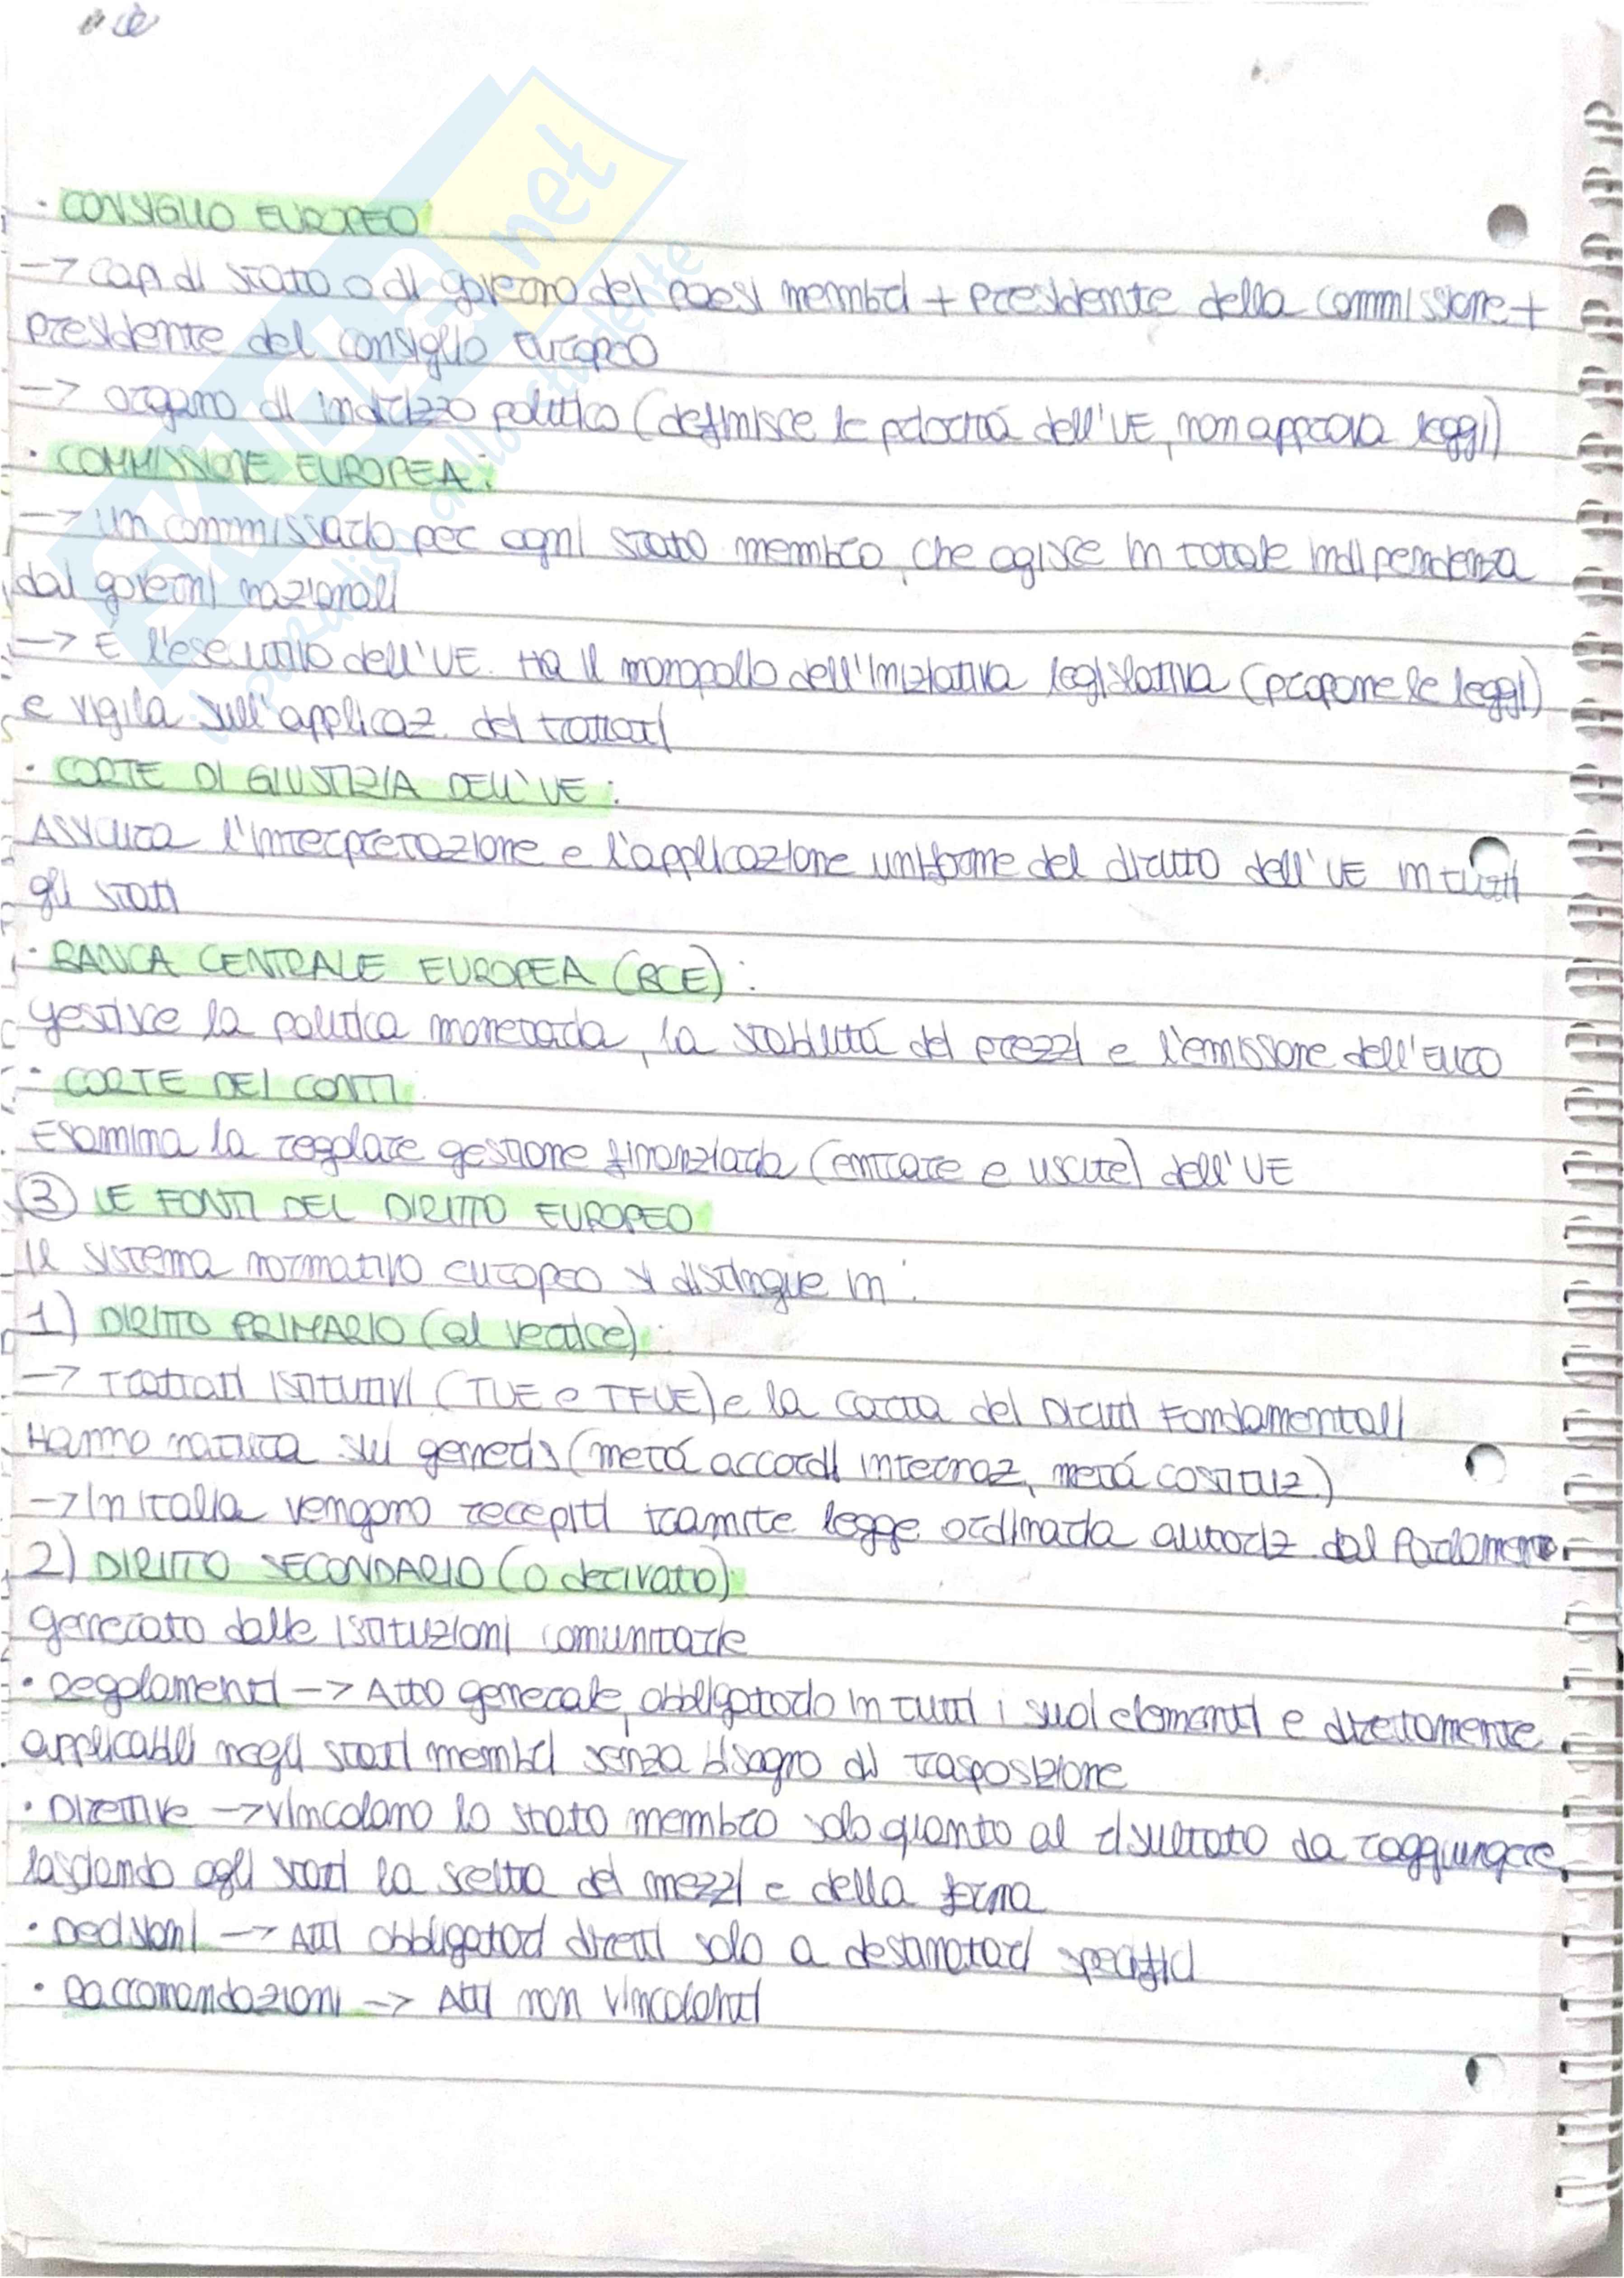 • CONSIGLIO EUROPEO
→ capi di stato o di governo dei paesi membri + presidente della commissione +
presidente del consiglio europeo
→ organo di indirizzo politico (definisce le priorità dell'UE, non approva leggi)
• COMMISSIONE EUROPEA:
→ un commissario per ogni stato membro, che agisce in totale indipendenza
dai governi nazionali
→ È l'esecutivo dell'UE. Ha il monopolio dell'iniziativa legislativa (propone le leggi)
e vigila sull'applicaz. dei trattati
• CORTE DI GIUSTIZIA DELL'UE:
Assicura l'interpretazione e l'applicazione uniforme del diritto dell'UE in tutti
gli stati
• BANCA CENTRALE EUROPEA (BCE):
gestisce la politica monetaria, la stabilità dei prezzi e l'emissione dell'euro
• CORTE DEI CONTI
Esamina la regolare gestione finanziaria (entrate e uscite) dell'UE
③ LE FONTI DEL DIRITTO EUROPEO
Il sistema normativo europeo si distingue in:
1) DIRITTO PRIMARIO (al vertice):
→ Trattati istitutivi (TUE e TFUE) e la carta dei Diritti Fondamentali
Hanno natura sui generis (metà accordi internaz, metà costituz.)
→ In Italia vengono recepiti tramite legge ordinaria autoriz. dal Parlamento.
2) DIRITTO SECONDARIO (o derivato):
generato dalle istituzioni comunitarie
• Regolamenti → Atto generale, obbligatorio in tutti i suoi elementi e direttamente
applicabili negli stati membri senza bisogno di trasposizione
• Direttive → vincolano lo stato membro solo quanto al risultato da raggiungere,
lasciando agli stati la scelta dei mezzi e della forma
• Decisioni → Atti obbligatori diretti solo a destinatari specifici
• Raccomandazioni → Atti non vincolanti